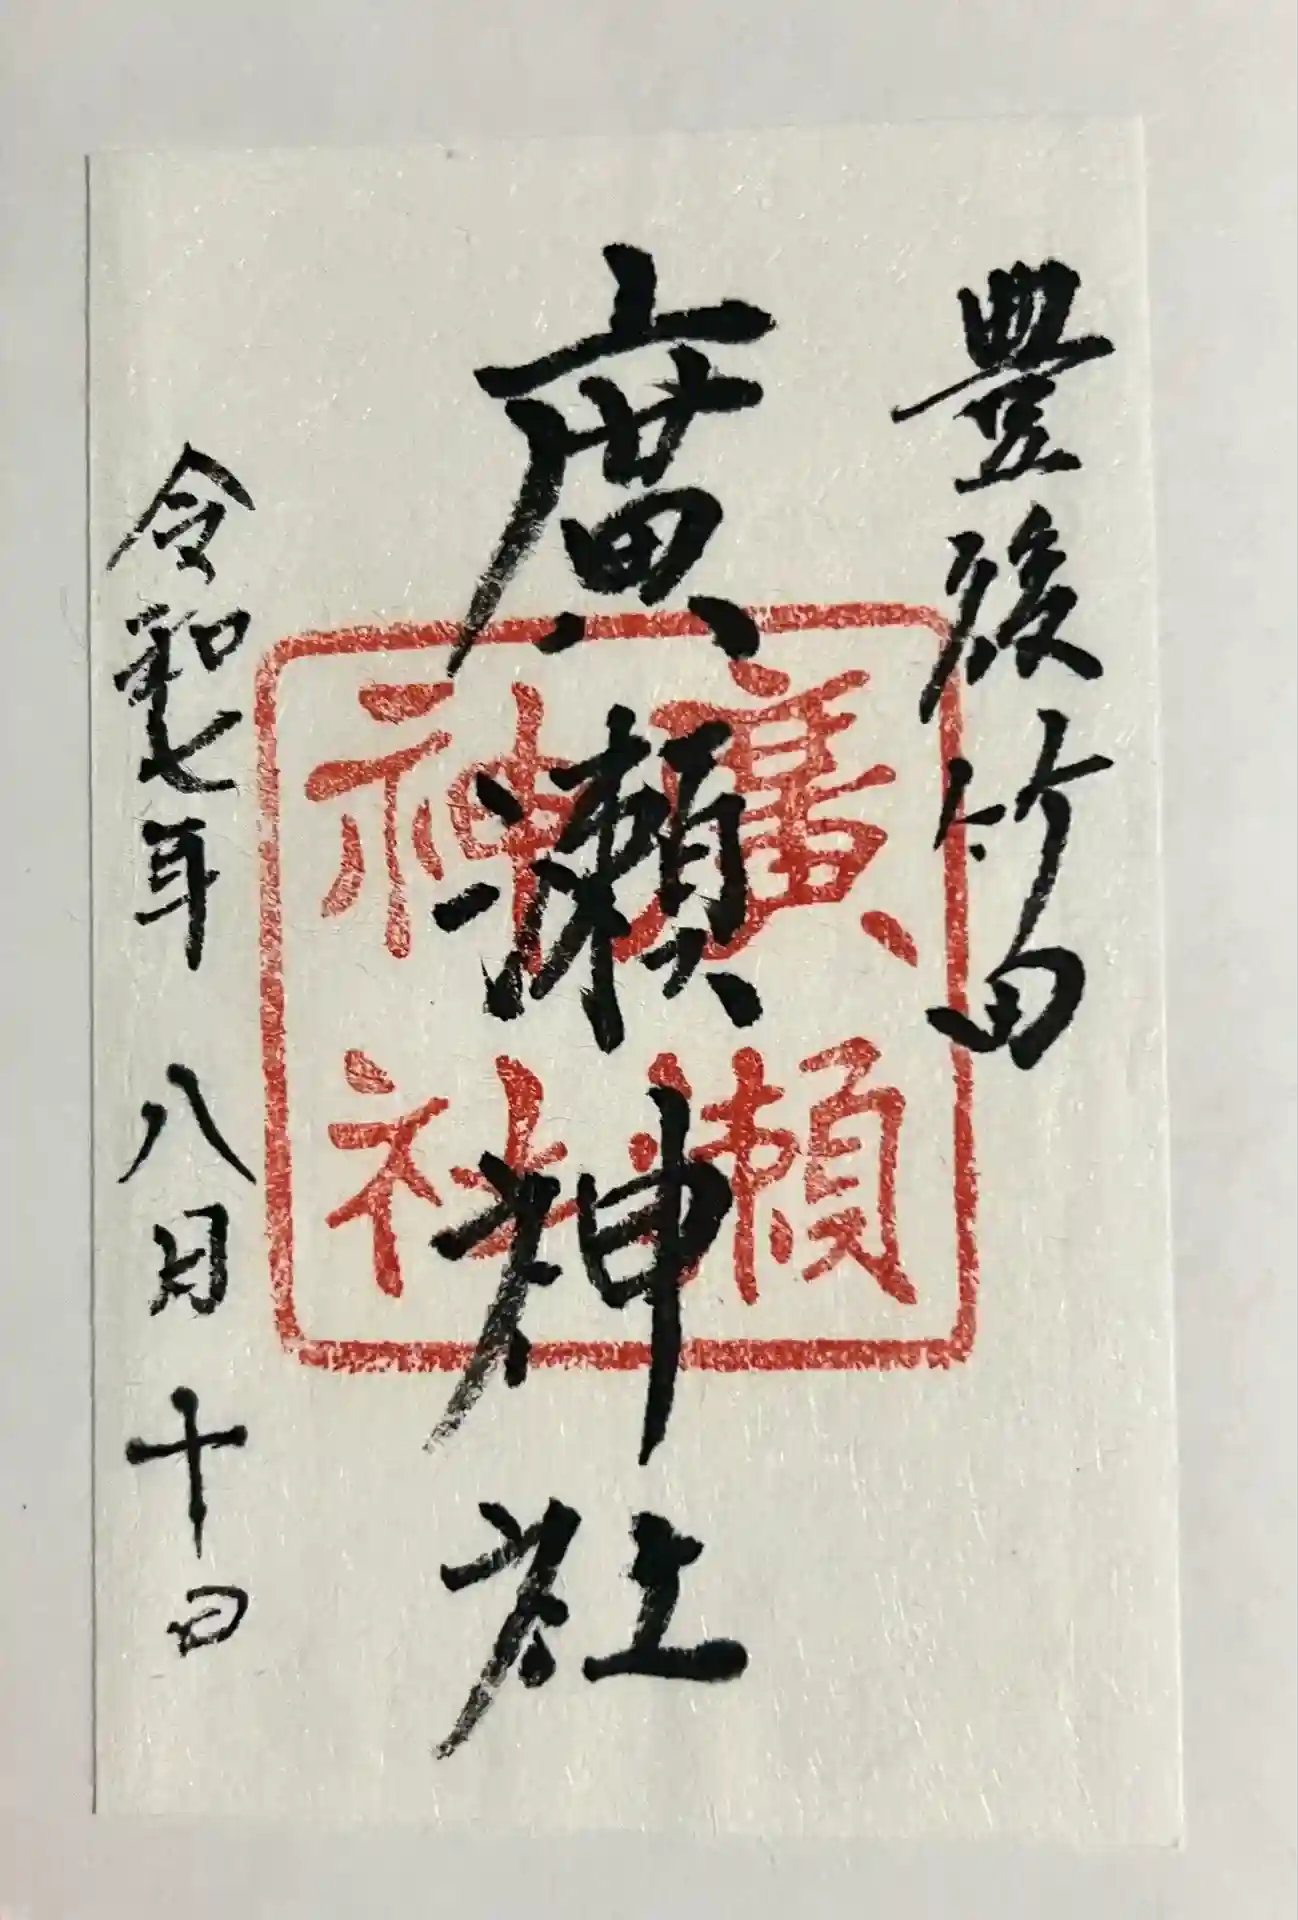 豊後竹田
廣瀬神社
令和七年八月十日
廣瀬
神社